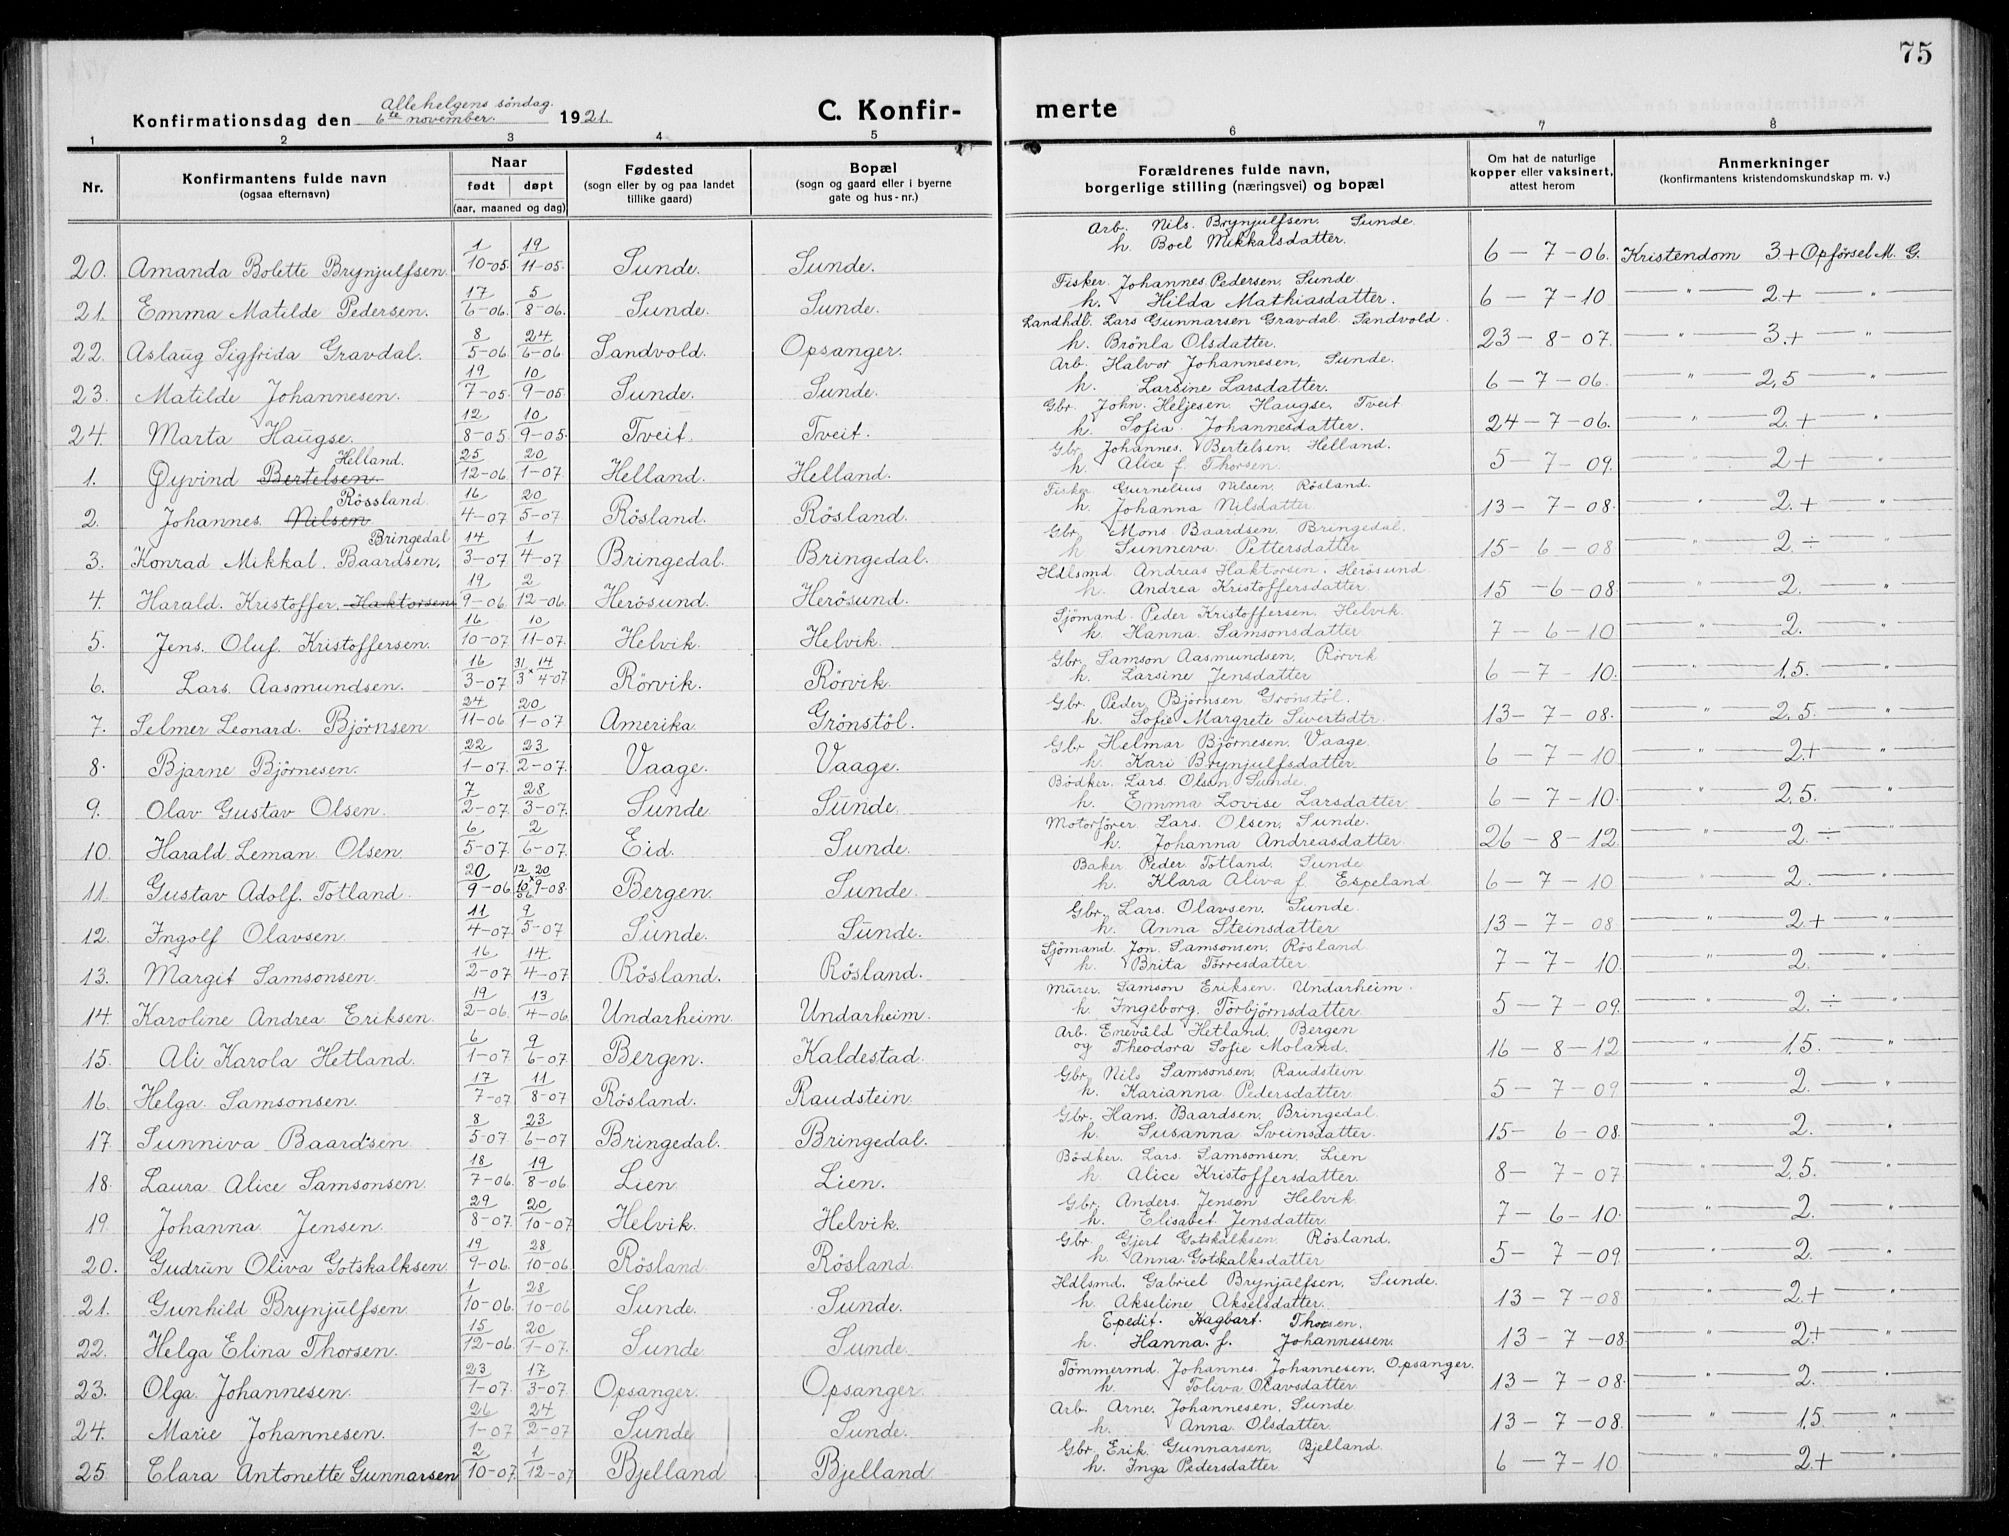 75
Konfirmationsdag den Allehelgens söndag 6te november. 1921.
C. Konfirmerte
1 2 3 4 5 6 7 8
Nr. | Konfirmantens fulde navn (ogsaa efternavn) | Naar født døpt (aar, maaned og dag) | Fødested (sogn eller by og paa landet tillike gaard) | Bopæl (sogn og gaard eller i byerne gate og hus-nr.) | Forældrenes fulde navn, borgerlige stilling (næringsvei) og bopæl | Om hat de naturlige kopper eller vaksinert, attest herom | Anmerkninger (konfirmantens kristendomskundskap m. v.)
20. Amanda Bolette Brynjulfsen. 1/10-05. 19/11-05. Sunde. Sunde. Arb. Nils. Brynjulfsen. Sunde. h. Boel Mikkalsdatter. 6-7-06. Kristendom 3+ Opförsel M. G.
21. Emma Matilde Pedersen. 17/6-06. 5/8-06. Sunde. Sunde. Fisker. Johannes. Pedersen, Sunde. h. Hilda Mathiasdatter. 6-7-10 " 2+ "
22. Aslaug Sigfrida Gravdal. 8/5-06 24/6-06. Sandvold. Opsanger. Landhdl. Lars Gunnarsen Gravdal. Sandvold. h. Brönla Olsdatter. 23-8-07. " 3+ "
23. Matilde Johannesen. 19/7-05. 10/9-05. Sunde. Sunde. Arb. Halvor Johannesen, Sunde. h. Larsine Larsdatter. 6-7-06. " 2,5 "
24. Marta Haugse. 12/8-05. 10/9-05. Tveit. Tveit. Gbr. John. Heljesen. Haugse, Tveit h. Sofia Johannesdatter. 24-7-06. " 2+ "
1. Øyvind Bertelsen. Helland. 25/12-06 20/1-07. Helland. Helland. Gbr. Johannes. Bertelsen, Helland. h. Alice f. Thorsen. 5-7-09. " 2+ "
2. Johannes. Nilsen Rössland. 16/4-07. 20/5-07. Rösland. Rösland. Fisker Gurnelius Nilsen, Rösland. h. Johanna Nilsdatter. 13-7-08. " 2.+ "
3. Konrad Mikkal. Baardsen. Bringedal 14/3-07 1/4-07. Bringedal. Bringedal. Gbr. Mons Baardsen, Bringedal. h Sunneva. Pettersdatter 15-6-08 " 2÷ "
4. Harald. Kristoffer. Haktorsen 19/9-06. 2/12-06. Herösund. Herösund. Hdlsmd. Andreas Haktorsen. Herösund h. Andrea Kristoffersdatter. 15-6-08. " 2. "
5. Jens. Oluf. Kristoffersen. 16/10-07. 10/11-07. Helvik. Helvik. Sjömand. Peder Kristoffersen, Helvik. h. Hanna Samsonsdatter 7-6-10 " 2. "
6. Lars. Aasmundsen. 16/3-07 31/3 × 14/4-07 Rörvik. Rörvik. Gbr. Samson Aasmundsen, Rörvik h. Larsine Jensdatter 6-7-10. " 1,5. "
7. Selmer Leonard. Björnsen 24/11-06 20/1-07. Amerika. Grönstöl. Gbr. Peder Björnsen Grönstöl. h. Sofie Margrete Sivertsdtr. 13-7-08. " 2,5. "
8. Bjarne Björnesen. 22/1-07. 23/2-07. Vaage. Vaage. Gbr Helmar Björnesen, Vaage. h. Kari Brynjulfsdatter. 6-7-10. " 2+ "
9. Olav Gustav Olsen. 7/2-07. 28/3-07. Sunde Sunde. Bödker. Lars. Olsen. Sunde h. Emma Lovise Larsdatter 6-7-10. " 2,5. "
10. Harald Leman. Olsen. 6/5-07. 2/6-07. Eid. Sunde. Motorförer Lars. Olsen, Sunde. h. Johanna Andreasdatter. 26-8-12. " 2÷ "
11. Gustav Adolf. Totland. 20/9-06 12/10 06 × 20/9-08. Bergen. Sunde. Baker Peder Totland. Sunde h. Klara Aliva f. Espeland 6-7-10 " 2. "
12. Ingolf Olavsen. 11/4-07. 9/5-07 Sunde. Sunde. Gbr. Lars. Olavsen, Sunde. h. Anna Steinsdatter. 13-7-08 " 2+ "
13. Margit Samsonsen. 16/2-07. 14/4-07 Rösland. Rösland. Sjömand. Jon. Samsonsen, Rösland. h. Brita Torresdatter. 7-7-10. " 2. "
14. Karoline Andrea Eriksen. 19/2-06. 13/4-06 Undarheim. Undarheim. Murer. Samson Eriksen. Undarheim. h. Ingeborg. Torbjörnsdatter. 5-7-09. " 2÷ "
15. Ali Karola Hetland. 6/1-07. 9/6-07. Bergen. Kaldestad. Arb. Enevald Hetland, Bergen og Theodora Sofie Moland. 16-8-12 " 1,5. "
16. Helga. Samsonsen. 17/7-07 11/8-07 Rösland. Raudstein. Gbr. Nils Samsonsen, Raudstein h. Karianna Pedersdatter. 5-7-09 " 2. "
17 Sunniva Baardsen. 8/5-07 23/6-07 Bringedal. Bringedal. Gbr. Hans. Baardsen, Bringedal. h. Susanna Sveinsdatter. 15-6-08. " 2. "
18. Laura Alice Samsonsen. 18/7-06. 19/8-06. Lien. Lien. Bödker. Lars. Samsonsen. Lien h. Alice Kristoffersdatter. 8-7-07. " 2,5. "
19. Johanna Jensen. 29/8-07. 20/10-07 Helvik. Helvik. Gbr. Anders. Jensen Helvik h. Elisabet Jensdatter 7-6-10. " 2. "
20. Gudrun Oliva Gotskalksen. 19/9-06. 28/10-06 Rösland. Rösland. Gbr. Gjert Gotskalksen. Rösland. h. Anna. Gotskalksdatter 5-7-09 " 2. "
21. Gunhild Brynjulfsen. 1/10-06. 28/10-06 Sunde. Sunde. Hdlsmd. Gabriel Brynjulfsen, Sunde. h. Akseline Akselsdatter. 13-7-08 " 2+ "
22. Helga Elina Thorsen. 15/12-06. 20/1-07. Sunde. Sunde. Epedit. Hagbart. Thorsen. h. Hanna. f. Johannessen. 13-7-08. " 2+ "
23. Olga. Johannesen. 23/1-07. 17/3-07. Opsanger. Opsanger. Tömmermd. Johannes. Johannesen, Opsanger. h. Toliva Olavsdatter. 13-7-08. " 2. "
24. Marie Johannesen. 26/1-07 24/2-07 Sunde Sunde. Arb. Arne. Johannesen, Sunde. h. Anna Olsdatter. 13-7-08. " 1,5. "
25. Clara Antonette Gunnarsen 2/10-07. 1/12-07 Bjelland Bjelland. Gbr. Erik. Gunnarsen, Bjelland. h. Inga Pedersdatter. 6-7-10 " 2+ "